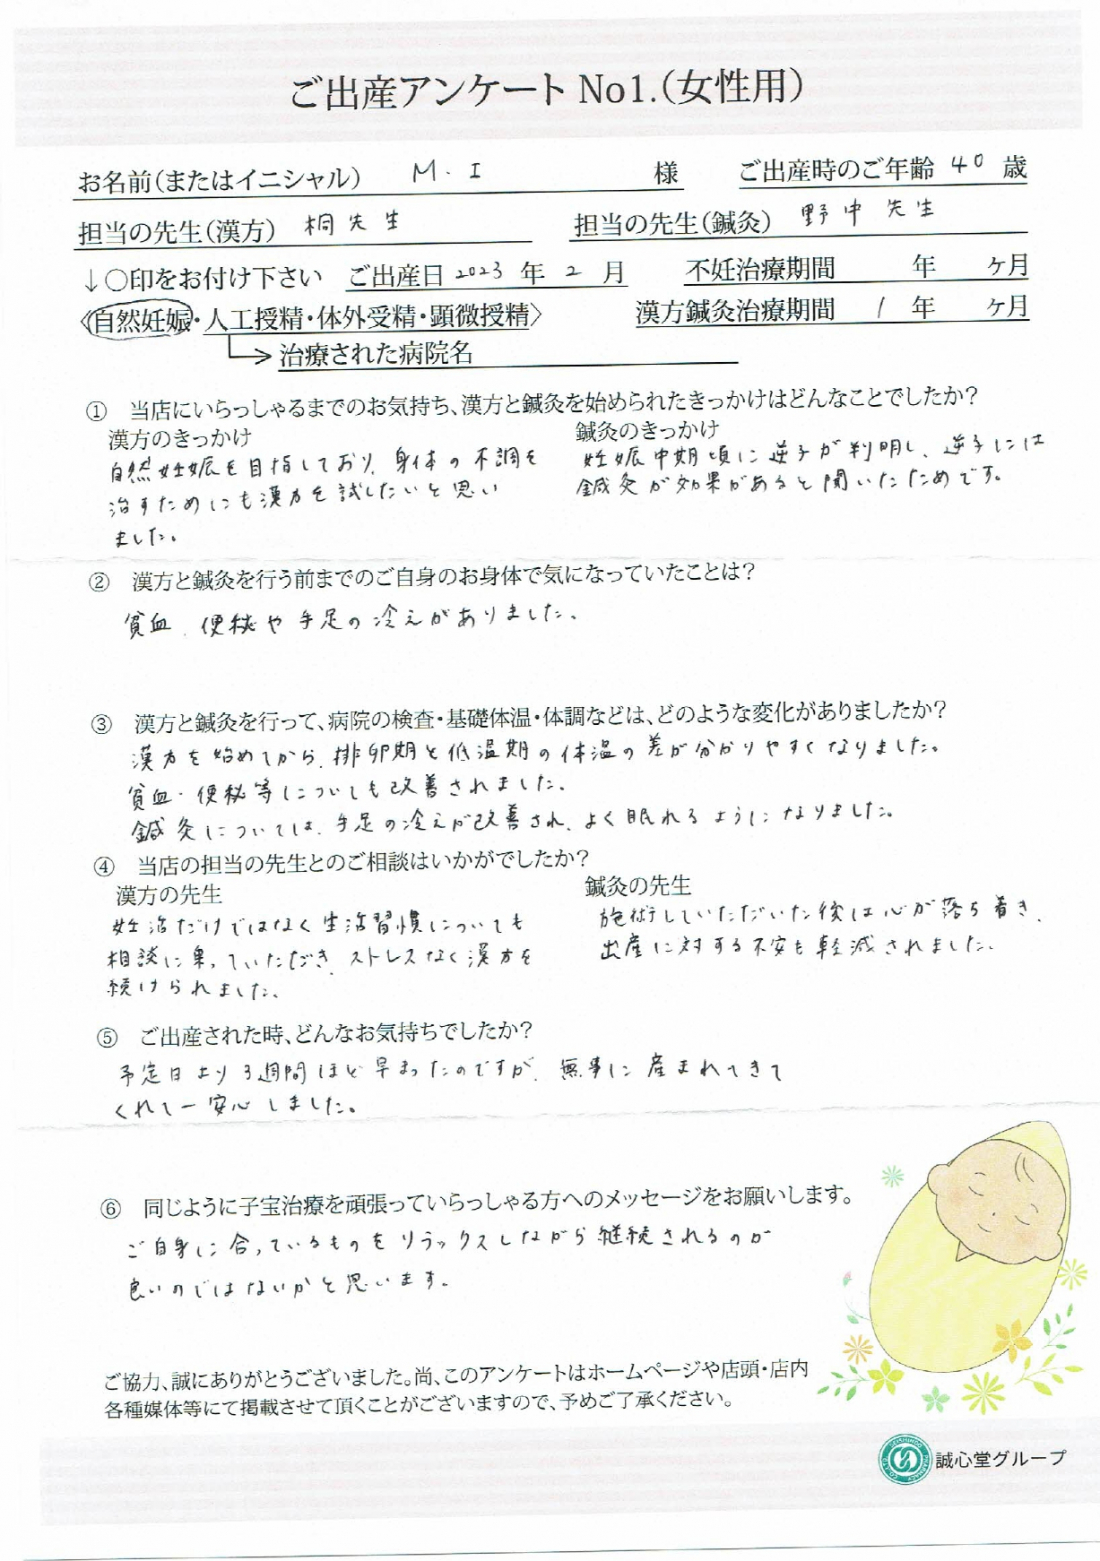 ご出産アンケート No1.(女性用)
お名前(またはイニシャル) M.I 様 ご出産時のご年齢 40 歳
担当の先生(漢方) 桐先生 担当の先生(鍼灸) 野中先生
↓○印をお付け下さい ご出産日 2023 年 2 月 不妊治療期間 年 ヶ月
〈自然妊娠・人工授精・体外受精・顕微授精〉 漢方鍼灸治療期間 1 年 ヶ月
治療された病院名
① 当店にいらっしゃるまでのお気持ち、漢方と鍼灸を始められたきっかけはどんなことでしたか?
漢方のきっかけ
自然妊娠を目指しており、身体の不調を
治すためにも漢方を試したいと思い
ました。
鍼灸のきっかけ
妊娠中期頃に逆子が判明し、逆子には
鍼灸が効果があると聞いたためです。
② 漢方と鍼灸を行う前までのご自身のお身体で気になっていたことは?
貧血、便秘や手足の冷えがありました。
③ 漢方と鍼灸を行って、病院の検査・基礎体温・体調などは、どのような変化がありましたか?
漢方を始めてから、排卵期と低温期の体温の差が分かりやすくなりました。
貧血・便秘等についても改善されました。
鍼灸については、手足の冷えが改善され、よく眠れるようになりました。
④ 当店の担当の先生とのご相談はいかがでしたか?
漢方の先生
妊活だけではなく生活習慣についても
相談に乗っていただき、ストレスなく漢方を
続けられました。
鍼灸の先生
施術していただいた後は心が落ち着き、
出産に対する不安も軽減されました。
⑤ ご出産された時、どんなお気持ちでしたか?
予定日より3週間ほど早まったのですが、無事に産まれてきて
くれて一安心しました。
⑥ 同じように子宝治療を頑張っていらっしゃる方へのメッセージをお願いします。
ご自身に合っているものをリラックスしながら継続されるのが
良いのではないかと思います。
ご協力、誠にありがとうございました。尚、このアンケートはホームページや店頭・店内
各種媒体等にて掲載させて頂くことがございますので、予めご了承ください。
誠心堂グループ